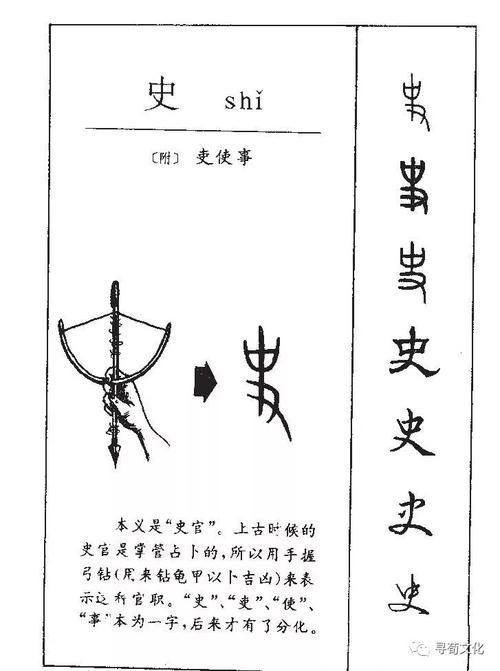 史 shǐ
〔附〕 吏使事
本义是“史官”。上古时候的
史官是掌管占卜的,所以用手握
弓钻(用来钻龟甲以卜吉凶)来表
示这种官职。“史”、“吏”、“使”、
“事”本为一字,后来才有了分化。
史
史
史
史
史
史
史
寻荀文化